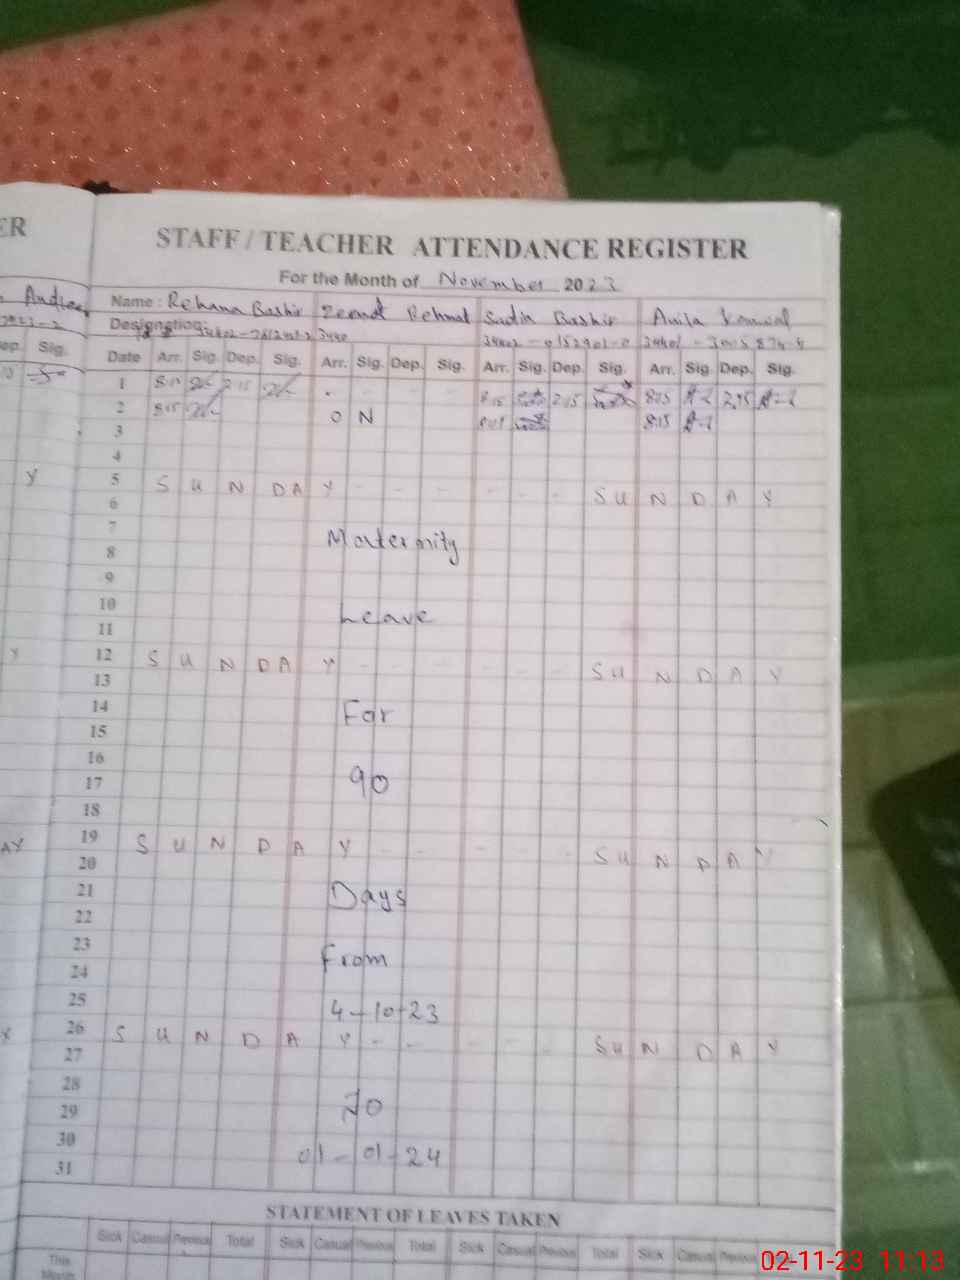 ER
STAFF / TEACHER ATTENDANCE REGISTER
For the Month of November 2023
Name : Rehana Bashir Zeenat Rehmat Sadia Bashir Anila
Designation:
Dep. Sig.
Date Arr. Sig. Dep. Sig. Arr. Sig. Dep. Sig. Arr. Sig. Dep. Sig. Arr. Sig. Dep. Sig.
1 8:15 2:15 8:15 2:15 8:15 2:15
2 8:15 O N 8:15
3
4
Y 5 S U N D A Y - - - - - - S U N D A Y
6
7 Maternity
8
9
10 Leave
11
Y 12 S U N D A Y - - - - - - S U N D A Y
13
14 For
15
16
17 90
18
AY 19 S U N D A Y - - - - - - S U N D A Y
20
21 Days
22
23 From
24
25 4-10-23
Y 26 S U N D A Y - - - - - S U N D A Y
27
28
29 To
30
31 01-01-24
STATEMENT OF LEAVES TAKEN
Sick Casual Previous Total Sick Casual Previous Total Sick Casual Previous Total Sick Casual Previous
This
Month
02-11-23 11:13